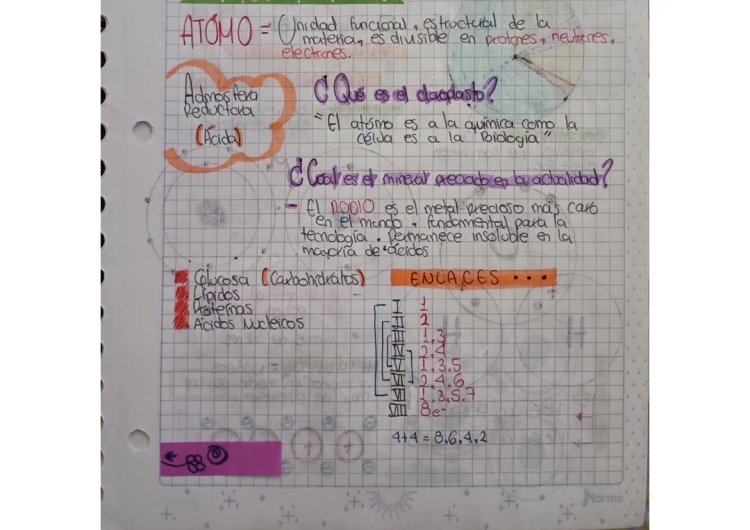 ATOMO = Unidad funcional, estructural de la
materia, es divisible en protones, neutrones,
electrones.
Admosfera
Reductora
(Ácida)
¿Qué es el cloroplasto?
"El atómo es a la química como la
célula es a la "Biología"
¿Cual es el mineral preciado en la actualidad?
- El RODIO es el metal precioso más caro
en el mundo. fundamental para la
tecnología. Permanece insoluble en la
mayoría de ácidos
Glucosa (Carbohidratos)
Lípidos
Proteínas
Ácidos Nucleicos
ENLACES ...
I 1
II 2
III 1,3
IV 2,4
V 1,3,5
VI 2,4,6
VII 1,3,5,7
VIII 8e-
4+4 = 8,6,4,2
Norma